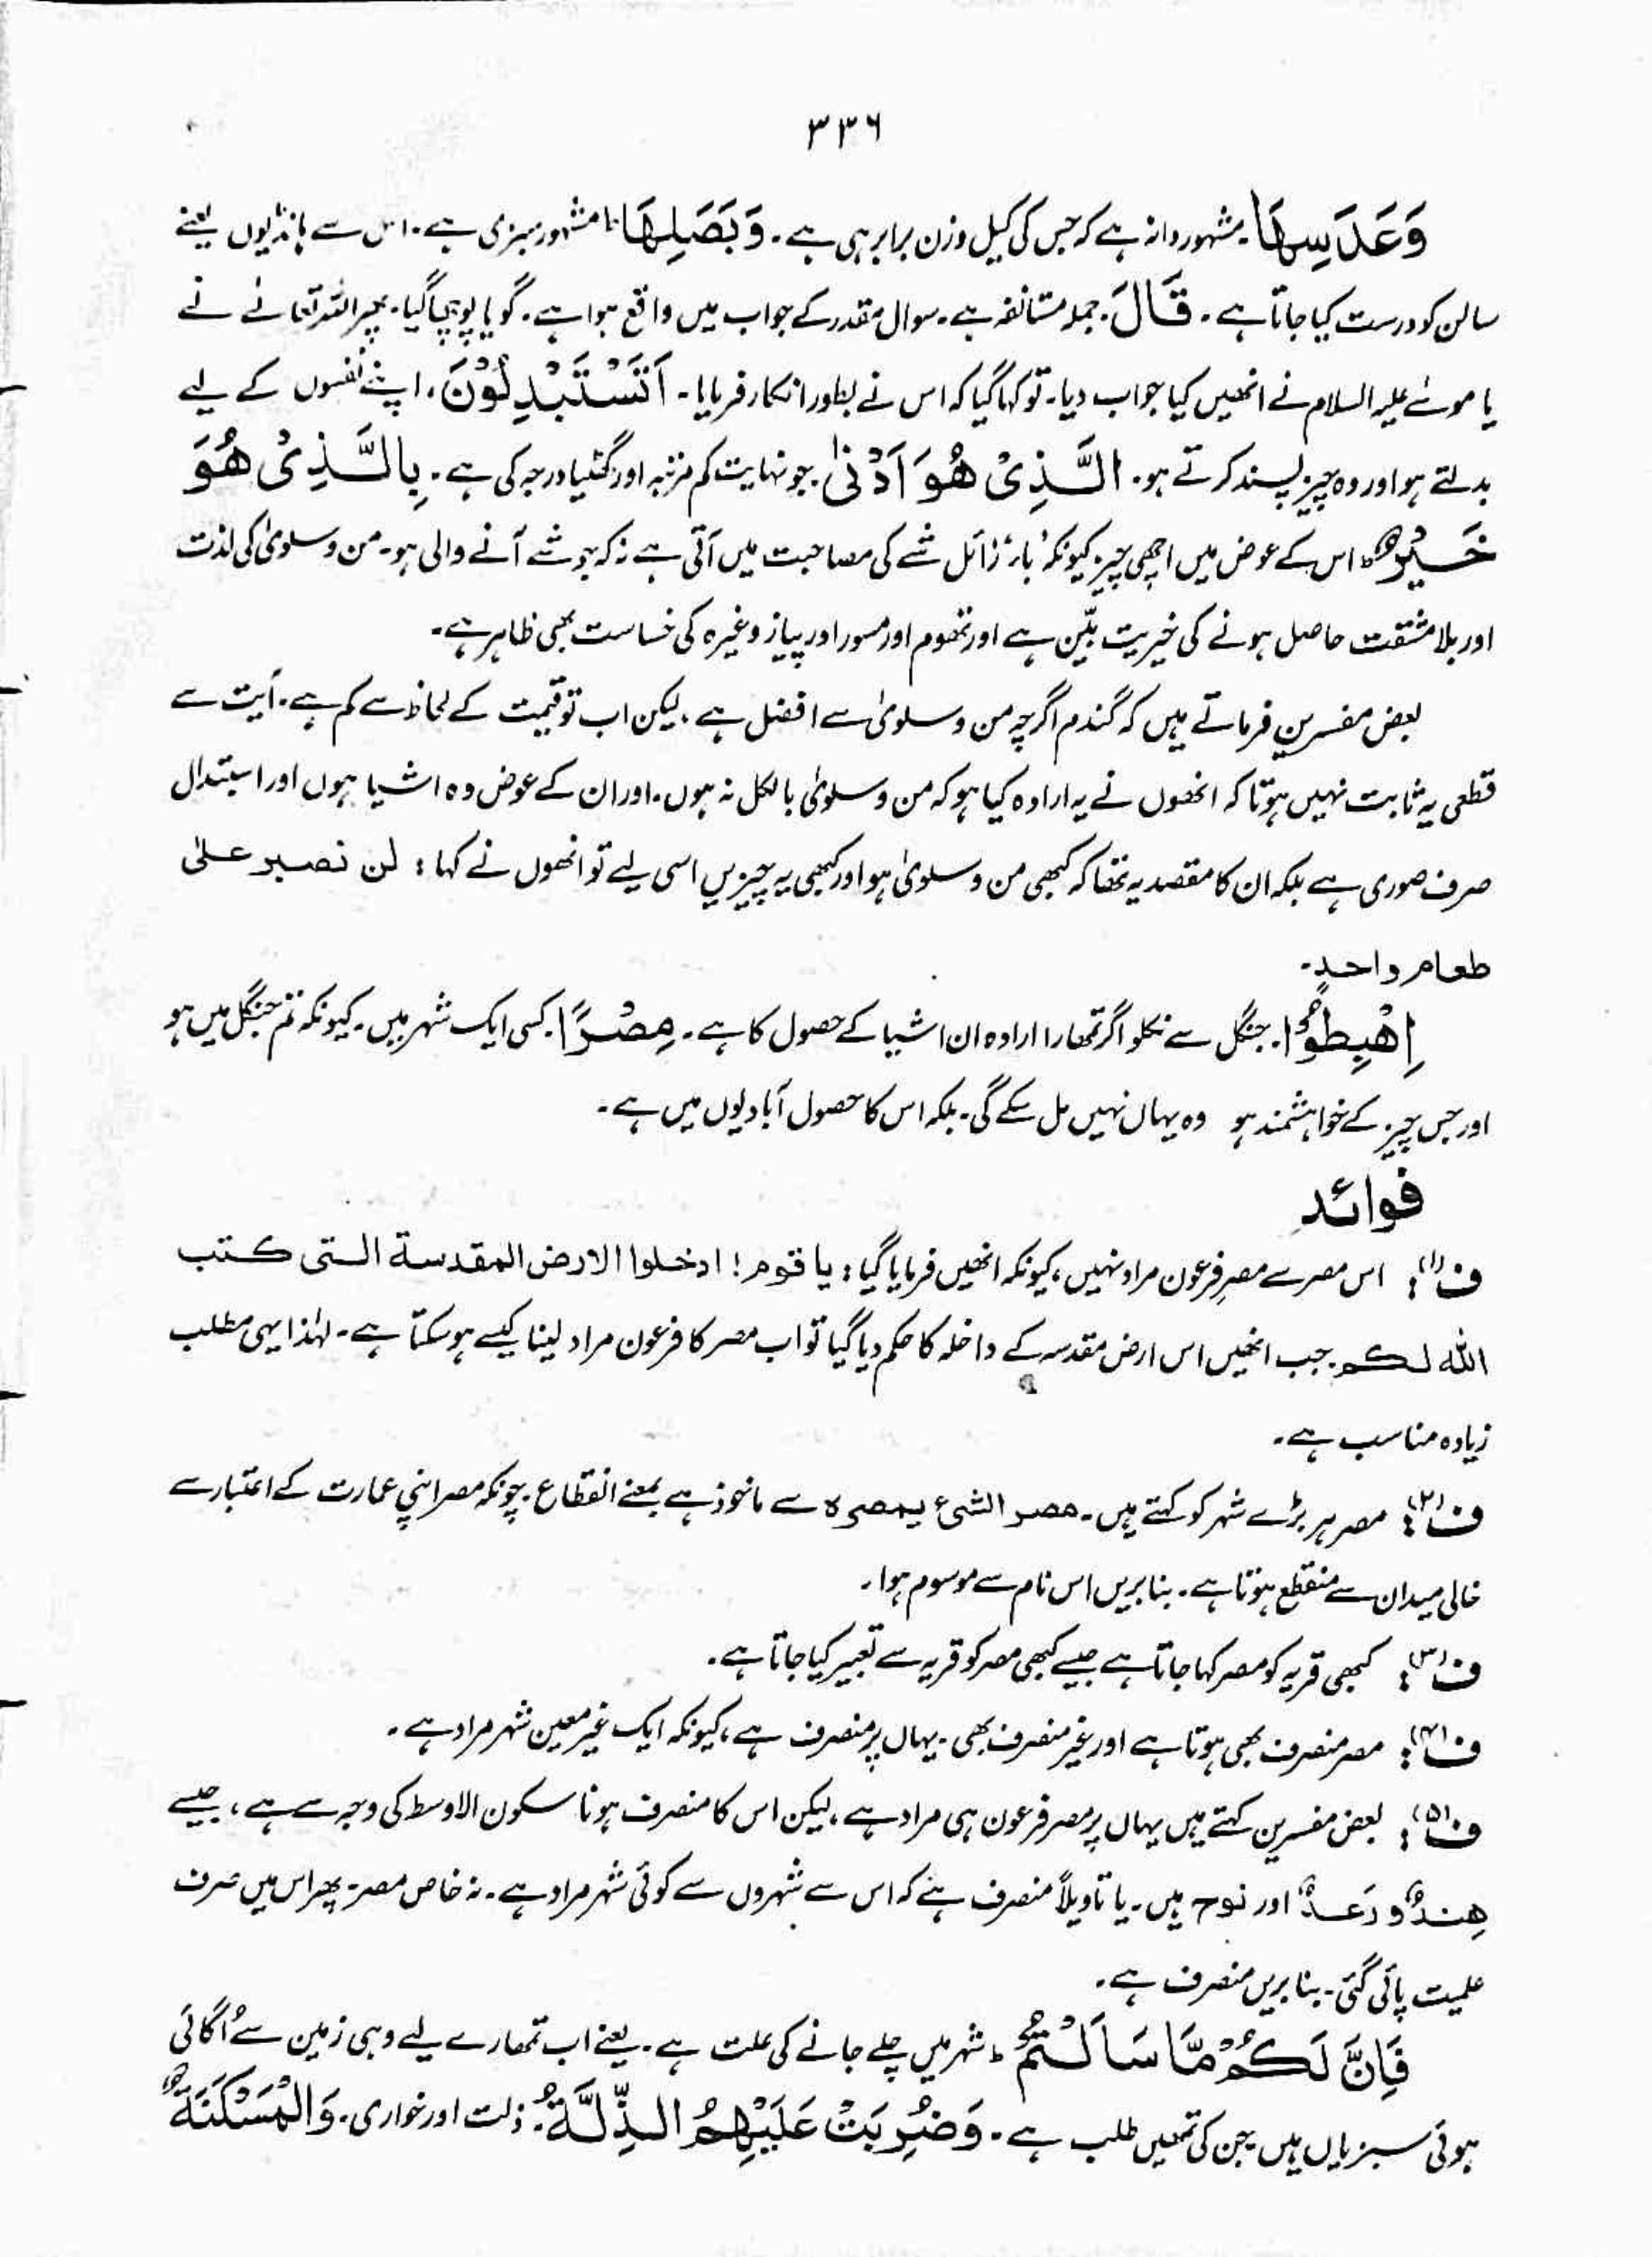 ۳۳۶
وَعَدَسِهَا۔ مشہور دانہ ہے کہ جس کی کیل وزن برابر ہی ہے۔ وَبَصَلِهَا مشہور سبزی ہے۔ اس سے ہانڈیوں یعنے
سالن کو درست کیا جاتا ہے۔ قَالَ۔ جملہ مستانفہ ہے۔ سوال مقدر کے جواب میں واقع ہوا ہے۔ گویا پوچھا گیا۔ پھر اللہ تعالےٰ نے
یا موسےٰ علیہ السلام نے انھیں کیا جواب دیا۔ تو کہا گیا کہ اس نے بطور انکار فرمایا۔ اَتَسْتَبْدِلُوْنَ، اپنے نفسوں کے لیے
بدلتے ہو اور وہ چیز پسند کرتے ہو۔ الَّذِیْ هُوَ اَدْنٰی۔ جو نہایت کم مرتبہ اور گھٹیا درجہ کی ہے۔ بِالَّذِیْ هُوَ
خَیْرٌ ط اس کے عوض میں اچھی چیز کیونکہ 'با' زائل شے کی مصاحبت میں آتی ہے نہ کہ جو شے آنے والی ہو۔ من و سلویٰ کی لذت
اور بلا مشقت حاصل ہونے کی خیریت بیّن ہے اور تھوم اور مسور اور پیاز وغیرہ کی خساست بھی ظاہر ہے۔
بعض مفسرین فرماتے ہیں کہ گندم اگرچہ من و سلویٰ سے افضل ہے، لیکن اب تو قیمت کے لحاظ سے کم ہے۔ آیت سے
قطعی یہ ثابت نہیں ہوتا کہ انھوں نے یہ ارادہ کیا ہو کہ من و سلویٰ بالکل نہ ہوں۔ اور ان کے عوض وہ اشیا ہوں اور استبدال
صرف صوری ہے بلکہ ان کا مقصد یہ تھا کہ کبھی من و سلویٰ ہو اور کبھی یہ چیزیں اسی لیے تو انھوں نے کہا : لن نصبر علیٰ
طعام واحدٍ۔
اِهْبِطُوْا۔ جنگل سے نکلو اگر تمھارا ارادہ ان اشیا کے حصول کا ہے۔ مِصْرًا۔ کسی ایک شہر میں۔ کیونکہ تم جنگل میں ہو
اور جس چیز کے خواہشمند ہو وہ یہاں نہیں مل سکے گی۔ بلکہ اس کا حصول آبادیوں میں ہے۔
فوائد
ف(۱) : اس مصر سے مصرِ فرعون مراد نہیں، کیونکہ انھیں فرمایا گیا : یا قوم! ادخلوا الارض المقدسة التی کتب
الله لکم۔ جب انھیں اس ارض مقدسہ کے داخلہ کا حکم دیا گیا تو اب مصر کا فرعون مراد لینا کیسے ہو سکتا ہے۔ لہٰذا یہی مطلب
زیادہ مناسب ہے۔
ف(۲) : مصر ہر بڑے شہر کو کہتے ہیں۔ مصر الشیء یمصرہ سے ماخوذ ہے بمعنے انقطاع۔ چونکہ مصر اپنی عمارت کے اعتبار سے
خالی میدان سے منقطع ہوتا ہے۔ بنا بریں اس نام سے موسوم ہوا۔
ف(۳) : کبھی قریہ کو مصر کہا جاتا ہے جیسے کبھی مصر کو قریہ سے تعبیر کیا جاتا ہے۔
ف(۴) : مصر منصرف بھی ہوتا ہے اور غیر منصرف بھی۔ یہاں پر منصرف ہے، کیونکہ ایک غیر معین شہر مراد ہے۔
ف(۵) : بعض مفسرین کہتے ہیں یہاں پر مصر فرعون ہی مراد ہے، لیکن اس کا منصرف ہونا سکون الاوسط کی وجہ سے ہے، جیسے
هِندٌ و دَعدٌ اور نوح ہیں۔ یا تاویلاً منصرف ہے کہ اس سے شہروں سے کوئی شہر مراد ہے۔ نہ خاص مصر۔ پھر اس میں صرف
علمیت پائی گئی۔ بنا بریں منصرف ہے۔
فَاِنَّ لَكُمْ مَّا سَاَلْتُمْ ط شہر میں چلے جانے کی علت ہے۔ یعنے اب تمھارے لیے وہی زمین سے اُگائی
ہوئی سبزیاں ہیں جن کی تمھیں طلب ہے۔ وَضُرِبَتْ عَلَيْهِمُ الذِّلَّةُ : ذلت اور خواری۔ وَالْمَسْكَنَةُ